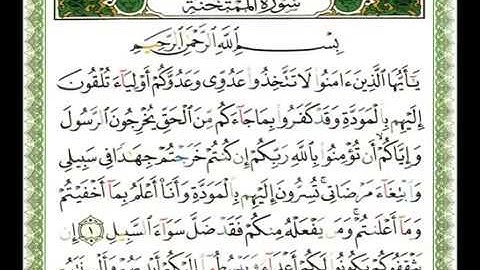 سُورَةُ المُمْتَحنَةِ
بِسْمِ ٱللَّهِ ٱلرَّحْمَٰنِ ٱلرَّحِيمِ
يَٰٓأَيُّهَا ٱلَّذِينَ ءَامَنُوا۟ لَا تَتَّخِذُوا۟ عَدُوِّى وَعَدُوَّكُمْ أَوْلِيَآءَ تُلْقُونَ
إِلَيْهِم بِٱلْمَوَدَّةِ وَقَدْ كَفَرُوا۟ بِمَا جَآءَكُم مِّنَ ٱلْحَقِّ يُخْرِجُونَ ٱلرَّسُولَ
وَإِيَّاكُمْ أَن تُؤْمِنُوا۟ بِٱللَّهِ رَبِّكُمْ إِن كُنتُمْ خَرَجْتُمْ جِهَٰدًا فِى سَبِيلِى
وَٱبْتِغَآءَ مَرْضَاتِى تُسِرُّونَ إِلَيْهِم بِٱلْمَوَدَّةِ وَأَنَا۠ أَعْلَمُ بِمَآ أَخْفَيْتُمْ
وَمَآ أَعْلَنتُمْ وَمَن يَفْعَلْهُ مِنكُمْ فَقَدْ ضَلَّ سَوَآءَ ٱلسَّبِيلِ ١ إِن
يَثْقَفُوكُمْ يَكُونُوا۟ لَكُمْ أَعْدَآءً وَيَبْسُطُوٓا۟ إِلَيْكُمْ أَيْدِيَهُمْ وَأَلْسِنَتَهُم